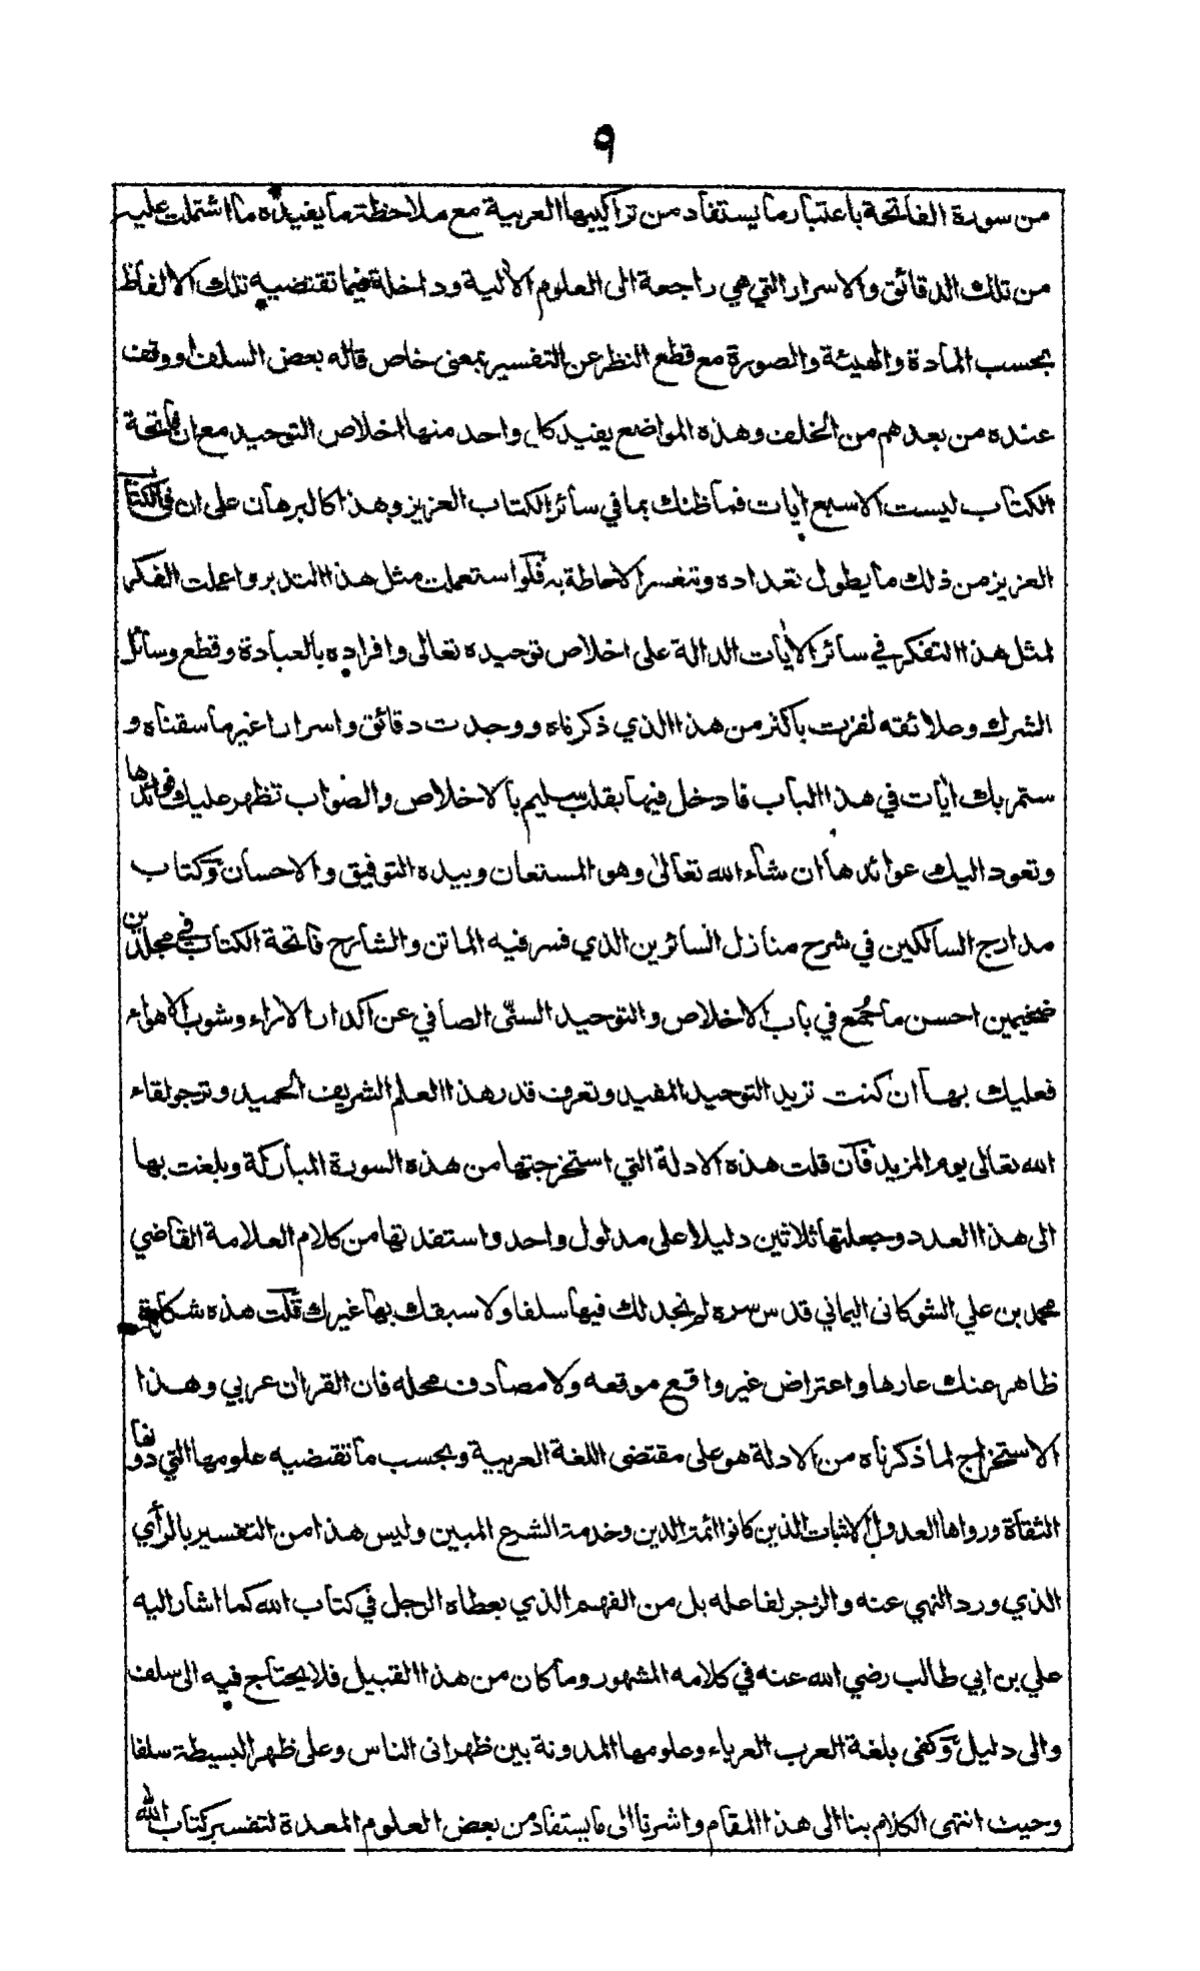 ٩
من سورة الفاتحة باعتبار ما يستفاد من تراكيبها العربية مع ملاحظة ما يفيده ما اشتملت عليه
من تلك الدقائق والاسرار التي هي راجعة الى العلوم الاٰلية وداخلة فيما تقتضيه تلك الالفاظ
بحسب المادة والهيئة والصورة مع قطع النظر عن التفسير بمعنى خاص قاله بعض السلف او وقف
عنده من بعدهم من الخلف وهذه المواضع يفيد كل واحد منها اخلاص التوحيد مع ان فاتحة
الكتاب ليست الا سبع اٰيات فما ظنك بما في سائر الكتاب العزيز وهذا كالبرهان على ان في الكتاب
العزيز من ذلك ما يطول تعداده وتتعسر الاحاطة به فلو استعملت مثل هذا التدبر واعملت الفكر
لمثل هذا التفكر في سائر الاٰيات الدالة على اخلاص توحيده تعالى وافراده بالعبادة وقطع وسائل
الشرك وعلائقه لفزت باكثر من هذا الذي ذكرناه ووجدت دقائق واسرارا غير ما سقناه و
ستمر بك اٰيات في هذا الباب فادخل فيها بقلب سليم بالاخلاص والصواب تظهر عليك فوائدها
وتعود اليك عوائدها ان شاء الله تعالىٰ وهو المستعان وبيده التوفيق والاحسان وكتاب
مدارج السالكين في شرح منازل السائرين الذي فسر فيه الماتن والشارح فاتحة الكتاب في مجلدين
ضخيمين احسن ما جُمع في باب الاخلاص والتوحيد السنّى الصافي عن اكدار الاٰراء وشوب الاهواء
فعليك بها ان كنت تريد التوحيد المفيد وتعرف قدر هذا العلم الشريف الحميد وترجو لقاء
الله تعالى يوم المزيد فآن قلت هذه الادلة التي استخرجتها من هذه السورة المباركة وبلغت بها
الى هذا العدد وجعلتها ثلاثين دليلا على مدلول واحد واستفدتها من كلام العلامة القاضي
محمد بن علي الشوكانى اليماني قدس سره لم نجد لك فيها سلفا ولا سبقك بها غيرك قلت هذه شكاة
ظاهر عنك عارها واعتراض غير واقع موقعه ولا مصادف محله فان القراٰن عربي وهذا
الاستخراج لما ذكرناه من الادلة هو على مقتضى اللغة العربية وبحسب ما تقتضيه علومها التي دونها
الثقاة ورواها العدول الاثبات الذين كانوا ائمة الدين وخدمة الشرع المبين وليس هذا من التفسير بالرأي
الذي ورد النهي عنه والزجر لفاعله بل من الفهم الذي يعطاه الرجل في كتاب الله كما اشار اليه
علي بن ابي طالب رضي الله عنه في كلامه المشهور وما كان من هذا القبيل فلا يحتاج فيه الى سلف
والى دليل وكفى بلغة العرب العرباء وعلومها المدونة بين ظهرانى الناس وعلى ظهر البسيطة سلفا
وحيث انتهى الكلام بنا الى هذا المقام واشرنا الى ما يستفاد من بعض العلوم المعدة لتفسير كتاب الله